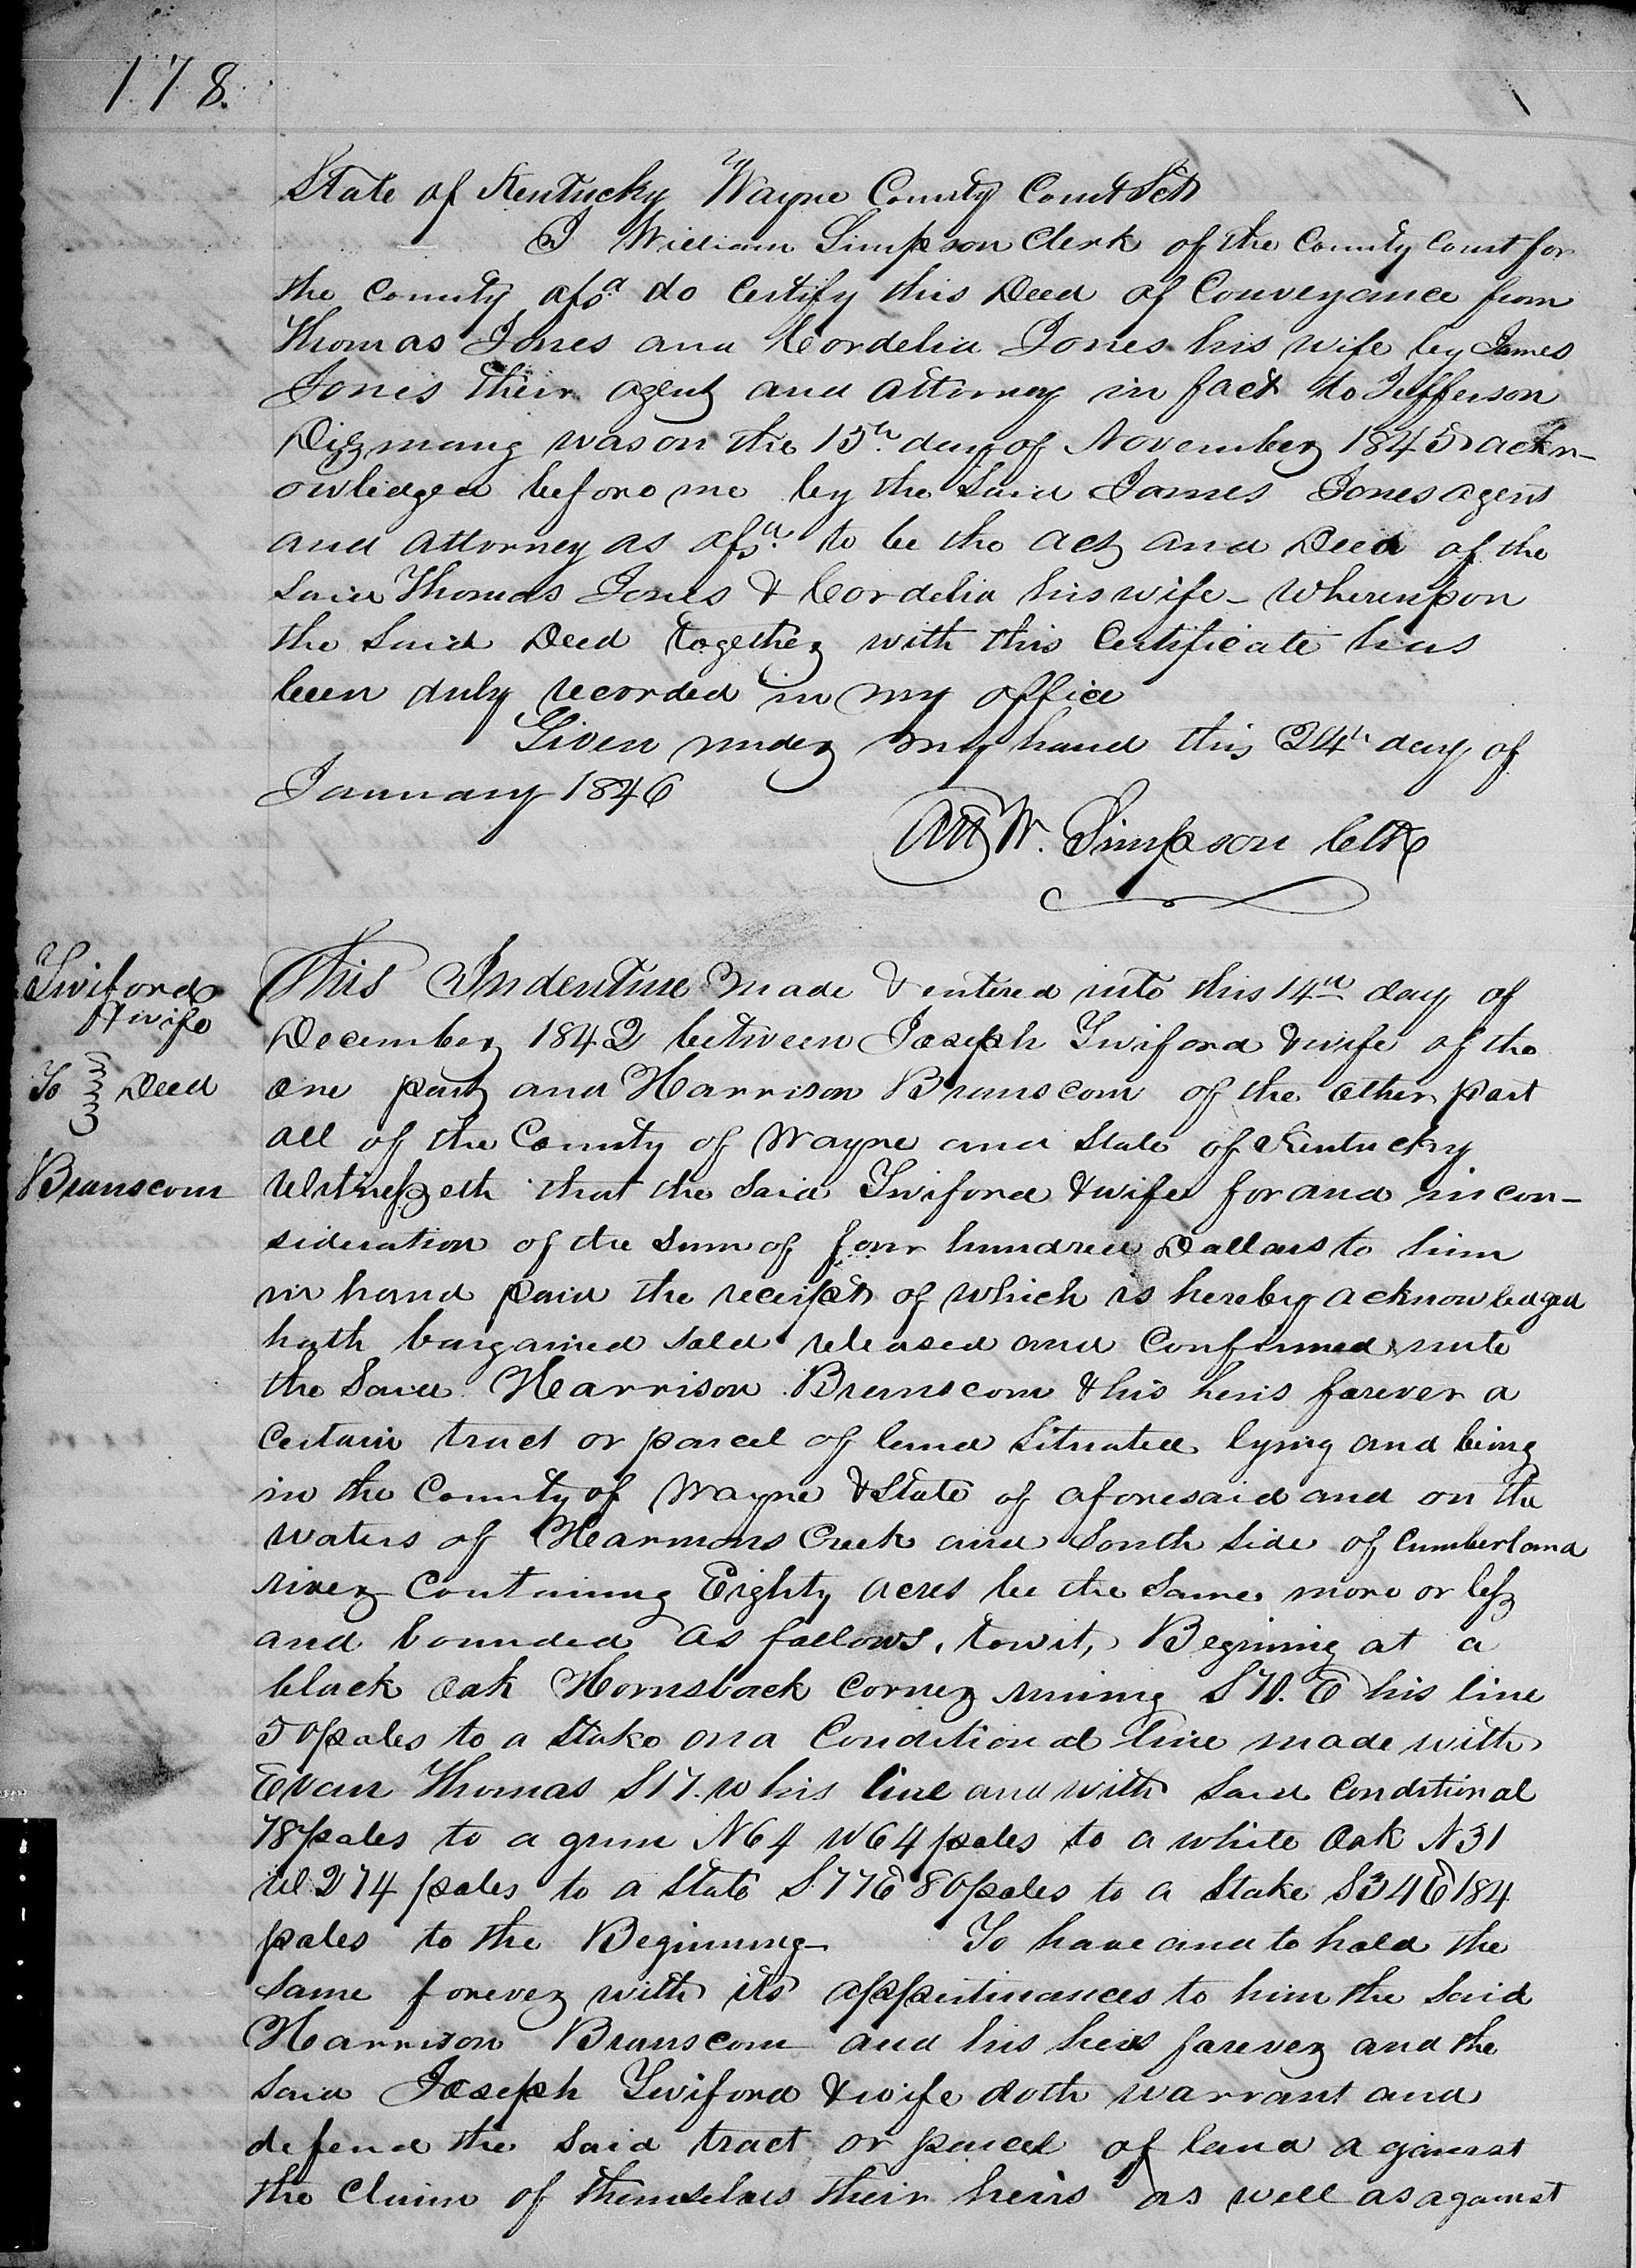 178.
State of Kentucky Wayne County Court Sct
I William Simpson Clerk of the County Court for
the County afsd. do Certify this Deed of Conveyance from
Thomas Jones and Cordelia Jones his wife by James
Jones their agent and attorney in fact to Jefferson
Dizmang was on the 15th. day of November 1845 ackn-
owledged before me by the said James Jones agent
and attorney as afsd. to be the act and Deed of the
said Thomas Jones & Cordelia his wife - Whereupon
the said Deed together with this Certificate has
been duly recorded in my office
Given under my hand this 24th day of
January 1846
Att W. Simpson Clk
Twiford
& wife
To } Deed
Branscom
This Indenture made & entered into this 14th day of
December 1842 between Joseph Twiford & wife of the
one part and Harrison Branscom of the other part
all of the County of Wayne and State of Kentucky
Witnesseth that the said Twiford & wife for and in con-
sideration of the sum of four hundred Dollars to him
in hand paid the receipt of which is hereby acknowledged
hath bargained sold released and confirmed unto
the said Harrison Branscom & his heirs forever a
certain tract or parcel of land situated lying and being
in the County of Wayne & State of aforesaid and on the
waters of Harmons Creek and South side of Cumberland
river Containing Eighty acres be the same more or less
and bounded as follows, towit, Begining at a
black oak Hornsback corner runing S 70. E his line
50 poles to a stake on a Conditional line made with
Evan Thomas S 17. W his line and with said conditional
78 poles to a gum N 64 W 64 poles to a white oak N 31
W 274 poles to a state S 77 E 80 poles to a stake S 34 E 184
poles to the Beginning - To have and to hold the
same forever with its appertinances to him the said
Harrison Branscom and his heirs forever and the
said Joseph Twiford & wife doth warrant and
defend the said tract or parcel of land against
the claim of themselves their heirs as well as against